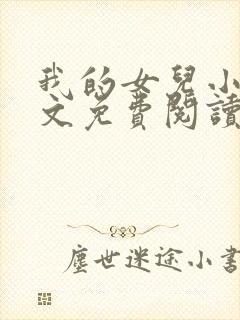 我的女兒小
文免費閱讀
塵世迷途小書